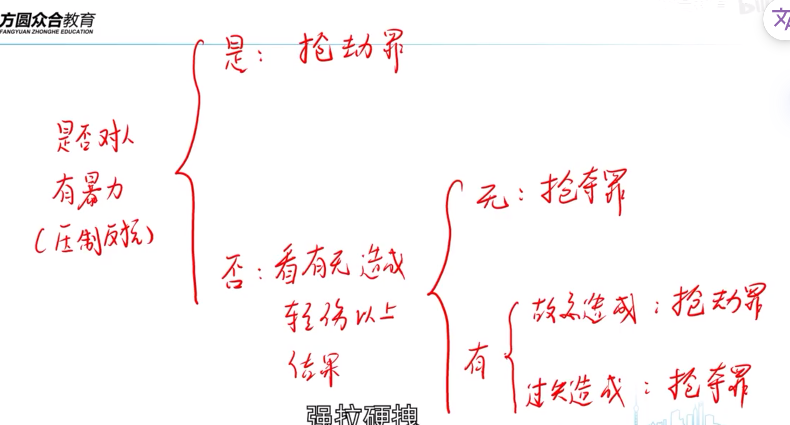 方圆众合教育
FANGYUAN ZHONGHE EDUCATION
是：抢劫罪
是否对人
有暴力
（压制反抗）
否：看有无造成
轻伤以上
结果
无：抢夺罪
有
故意造成：抢劫罪
过失造成：抢夺罪
强拉硬拽